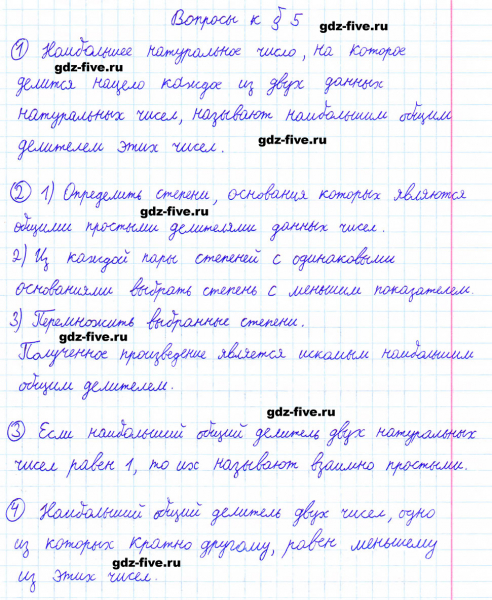 Вопросы к § 5
gdz-five.ru
① Наибольшее натуральное число, на которое
gdz-five.ru
делится нацело каждое из двух данных
gdz-five.ru
натуральных чисел, называют наибольшим общим
gdz-five.ru
делителем этих чисел.
② 1) Определить степени, основания которых являются
gdz-five.ru
общими простыми делителями данных чисел.
2) Из каждой пары степеней с одинаковыми
gdz-five.ru
основаниями выбрать степень с меньшим показателем.
3) Перемножить выбранные степени.
gdz-five.ru
Полученное произведение является искомым наибольшим
общим делителем.
gdz-five.ru
③ Если наибольший общий делитель двух натуральных
чисел равен 1, то их называют взаимно простыми.
④ Наибольший общий делитель двух чисел, одно
gdz-five.ru
из которых кратно другому, равен меньшему
gdz-five.ru
из этих чисел.